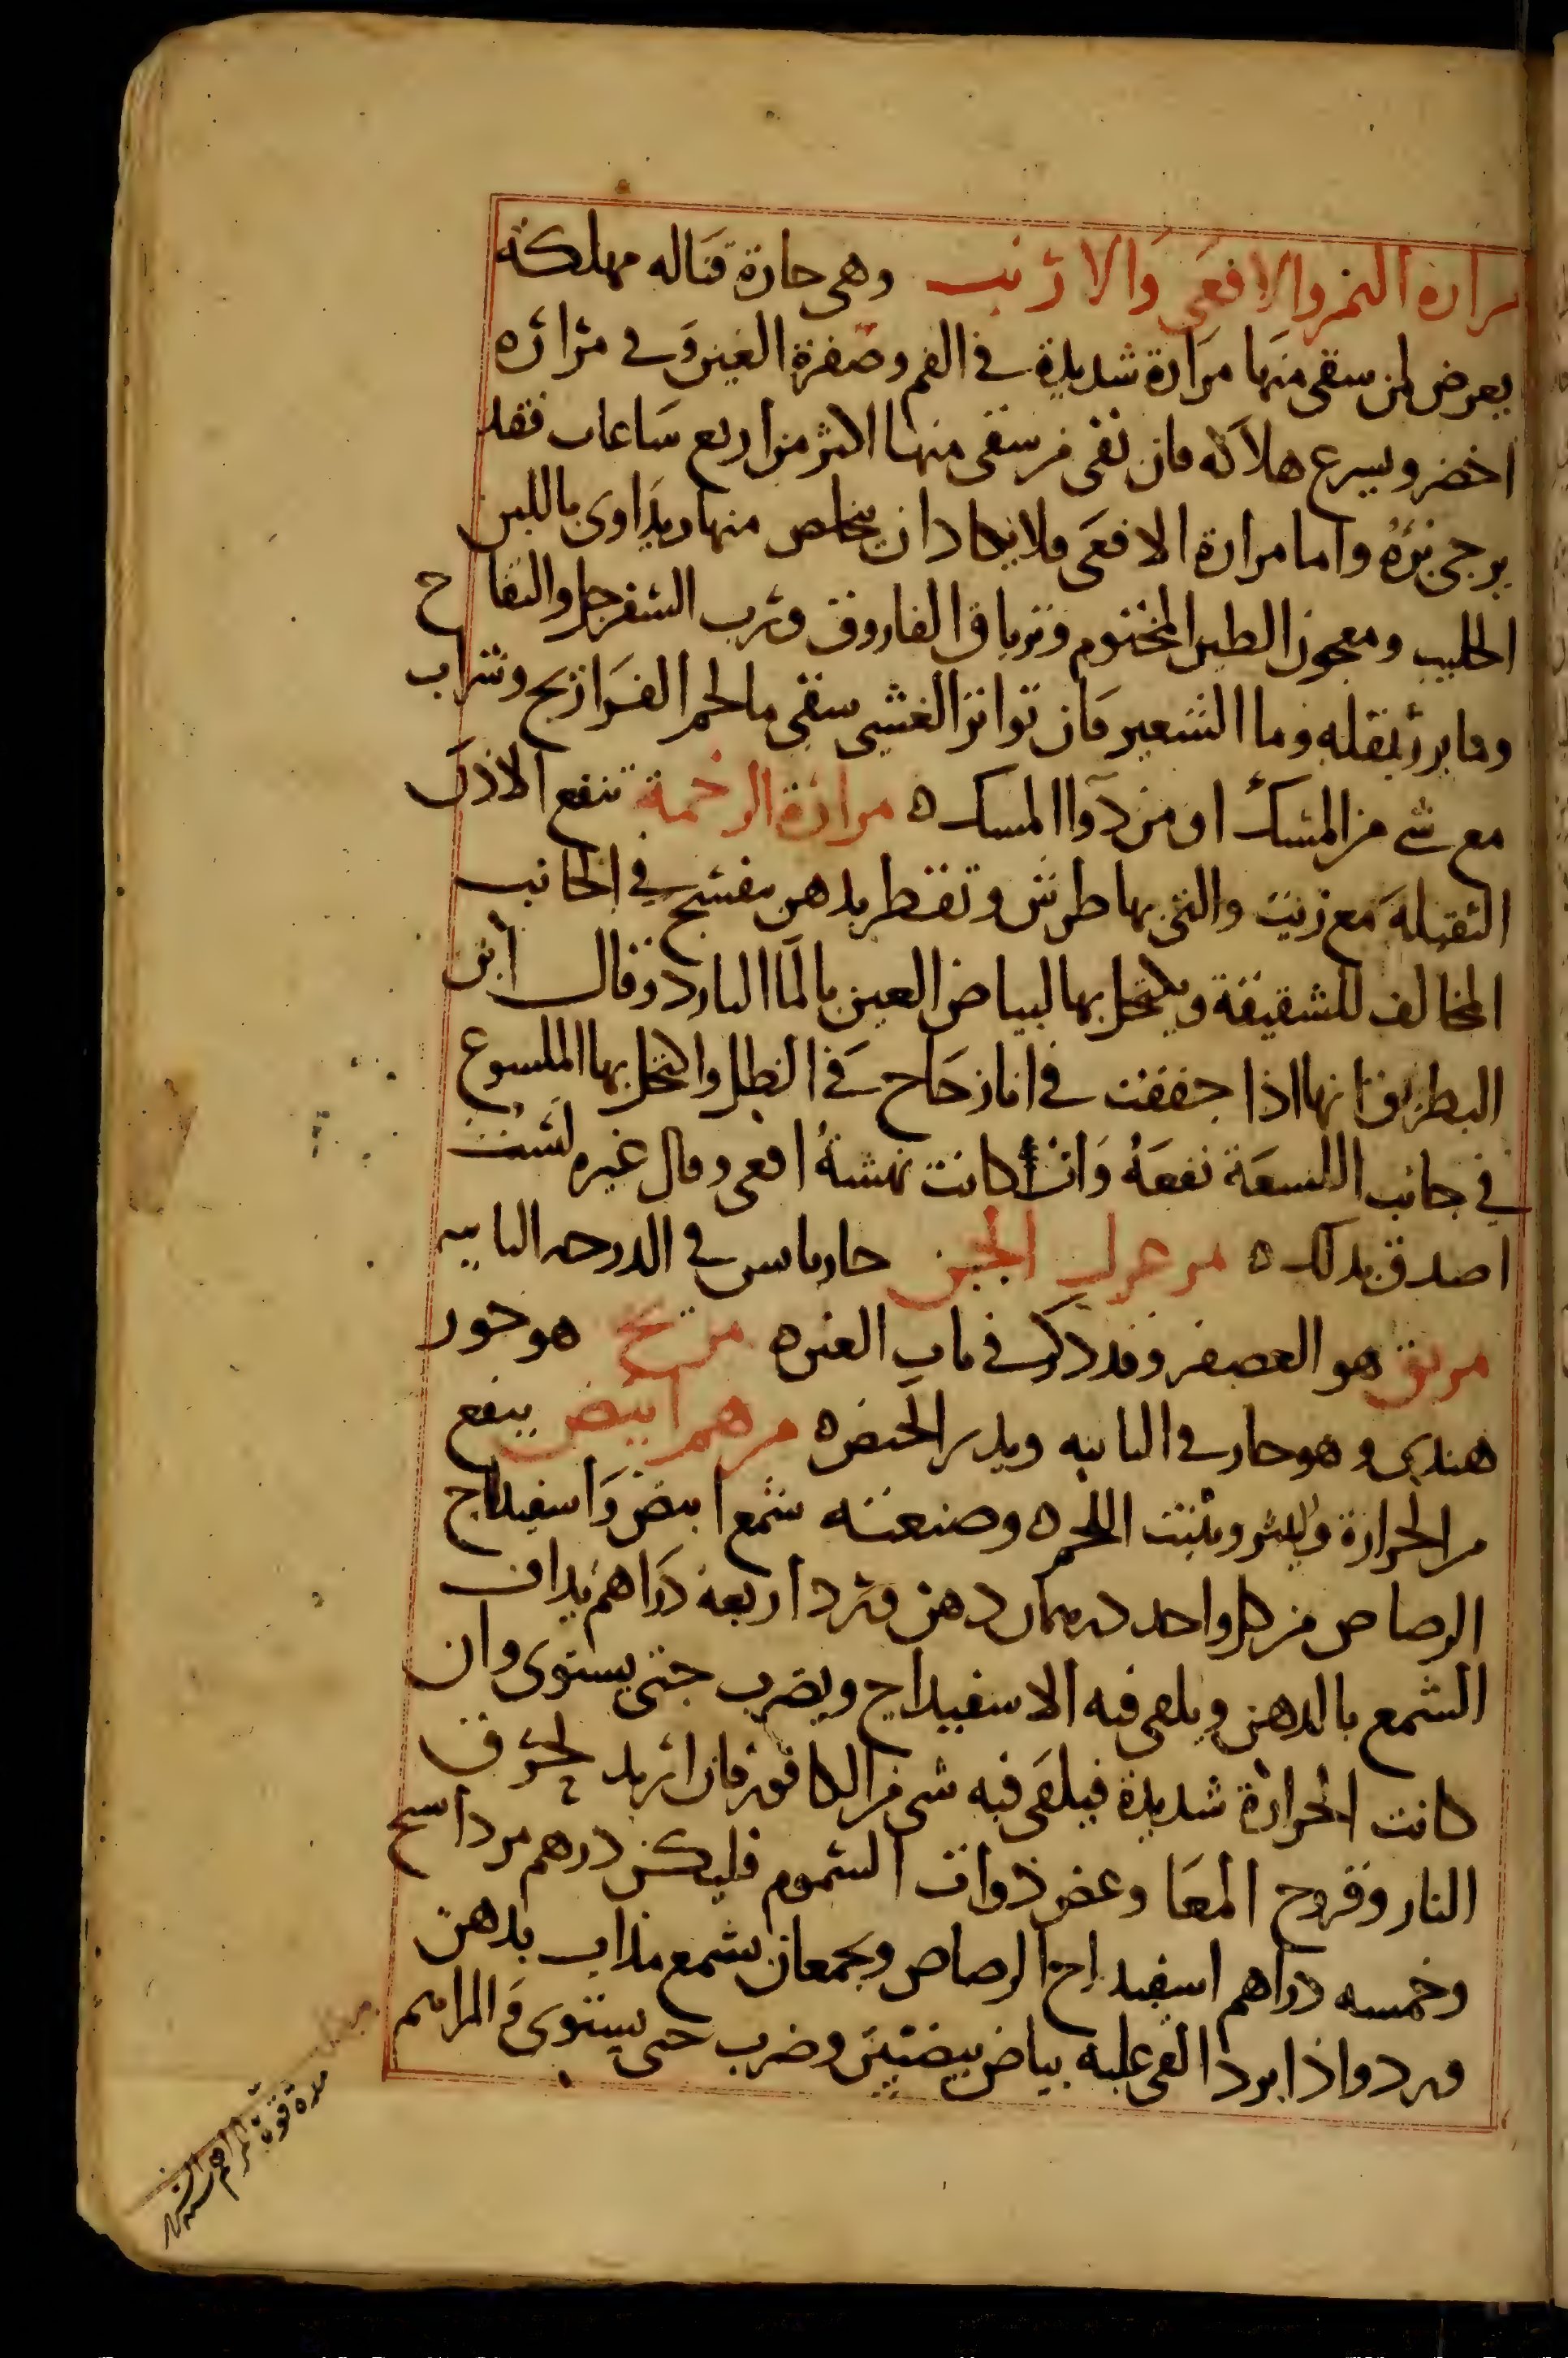 مرارة النمر والافعى والارنب وهى حارة قتاله مهلكة
يعرض لمن سقى منها مرارة شديدة في الفم وصفرة العين وفى مرائره
اخضر ويسرع هلاكه فان بقى من سقى منها اكثر من اربع ساعات فقد
يرجى برؤه واما مرارة الافعى فلا يكاد ان يتخلص منها ويداوى باللبن
الحليب ومعجون الطين المختوم وترياق الفاروق ورب السفرجل والتفاح
وما يرد بنقله وما الشعير فان تواتر الغشى سقى ما لحم الفراريج وشراب
مع شى من المسك او من دوا المسك ه مرارة الرخمة تنفع الاذن
الثقيلة مع زيت والتى بها طرش وتقطر بدهن بنفسج في الجانب
المخالف للشقيقة ويكتحل بها لبياض العين بالما البارد وقال ابن
البطريق انها اذا جففت في انا زجاج في الظل واكتحل بها الملسوع
في جانب اللسعة نفعه وان كانت نهشة افعى وقال غيره لست
اصدق بذلك ه الجبن حار يابس في الدرجه الثانيه
مريق هو العصفر وقد ذكر في باب العين ه مريح هو خور
هندى وهو حار في الثانيه ويدر الحيض ه مرهم ابيض ينفع
من الحرارة والبثر وينبت اللحم ه وصنعته شمع ابيض واسفيداج
الرصاص من كل واحد درهمان دهن ورد اربعة دراهم يداف
الشمع بالدهن ويلقى فيه الاسفيداج ويضرب حتى يستوى وان
كانت الحرارة شديدة فيلقى فيه شى من الكافور فان اريد لحرق
النار وقروح المعا وعض ذوات السموم فليكن درهم مرداسنج
وخمسه دراهم اسفيداج الرصاص ويجمعان بشمع مذاب بدهن
ورد واذا برد القى عليه بياض بيضتين وضرب حتى يستوى في المراهم
مدة قوة المراهم